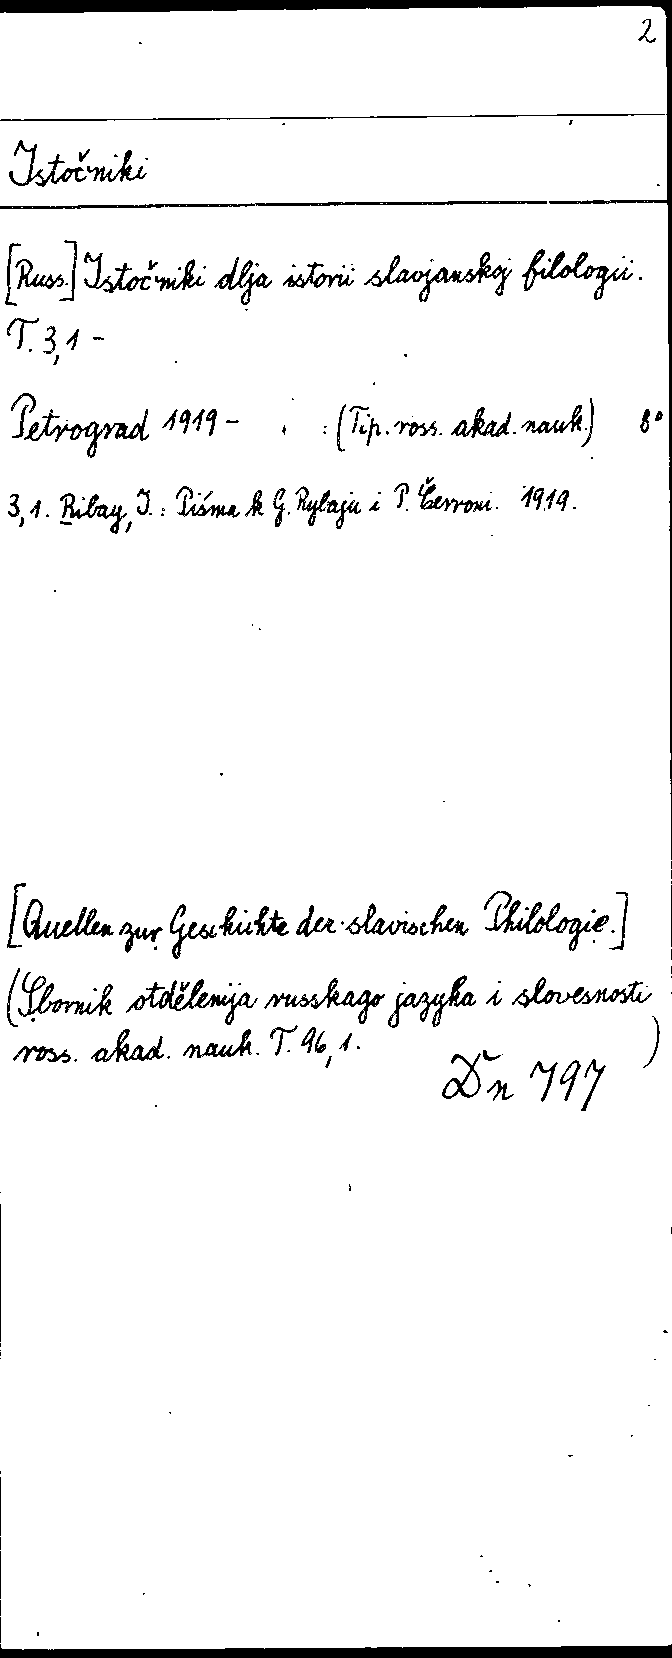 2
Istočniki
[Russ.] Istočniki dlja istorii slavjanskoj filologii.
T. 3,1 -
Petrograd 1919 - . : (Tip. ross. akad. nauk.) 8°
3,1. Ribay, J.: Piśma k G. Rybaju i P. Čerroni. 1919.
[Quellen zur Geschichte der slavischen Philologie.]
(Sbornik otdělenija russkago jazyka i slovesnosti
ross. akad. nauk. T. 96,1. )
Dn 797